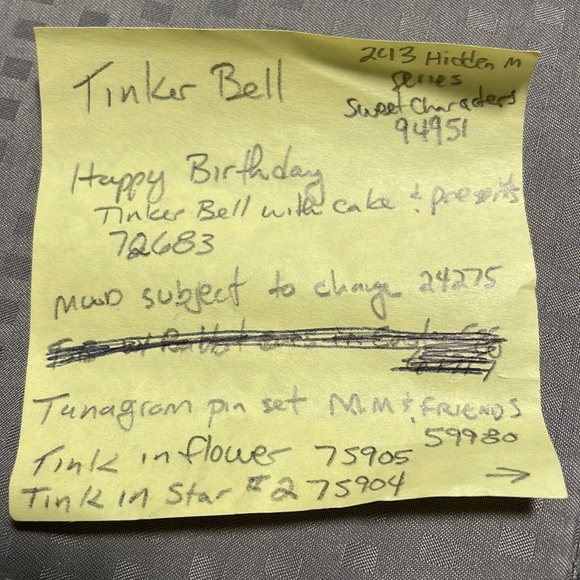 Tinker Bell
2013 Hidden M
series
Sweet Characters
94951
Happy Birthday
Tinker Bell with cake & presents
72683
MWD subject to change 24275
Tanagram pin set M.M & FRIENDS
59980
Tink in flower 75905
Tink in Star #2 75904 →